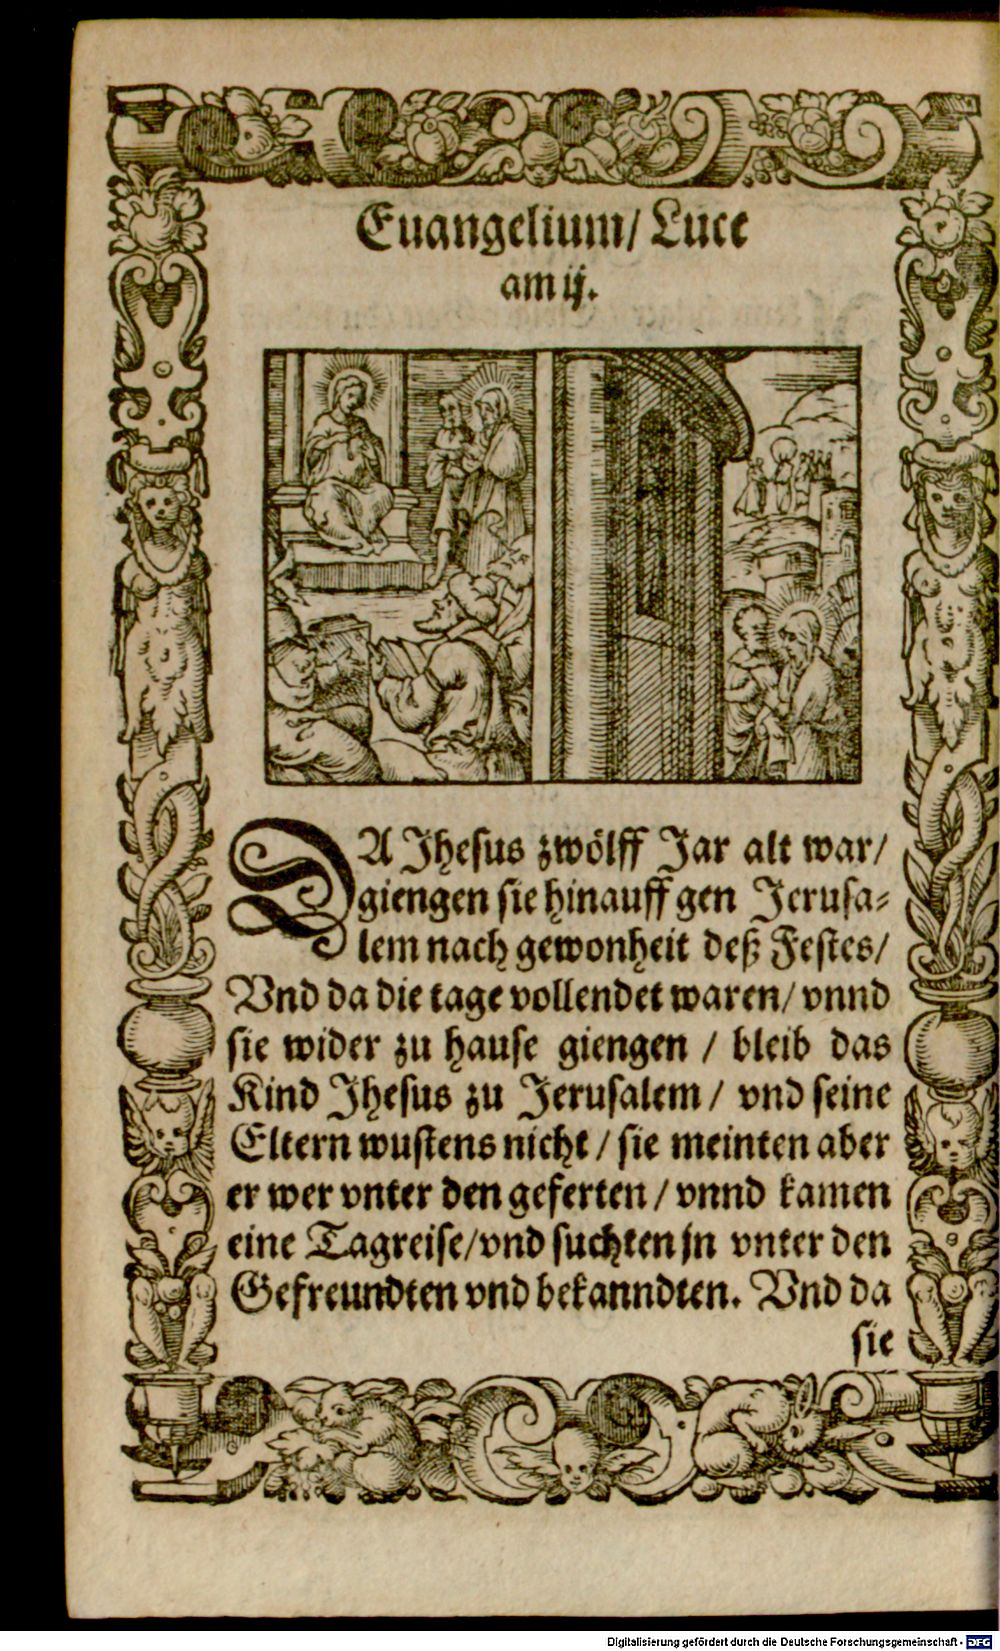 Euangelium/ Luce
am ij.
DA Jhesus zwölff Jar alt war/
giengen sie hinauff gen Jerusa⸗
lem nach gewonheit deß Festes/
Vnd da die tage vollendet waren/ vnnd
sie wider zu hause giengen / bleib das
Kind Jhesus zu Jerusalem / vnd seine
Eltern wustens nicht / sie meinten aber
er wer vnter den geferten / vnnd kamen
eine Tagreise/vnd suchten jn vnter den
Gefreundten vnd bekanndten. Vnd da
sie
Digitalisierung gefördert durch die Deutsche Forschungsgemeinschaft - DFG